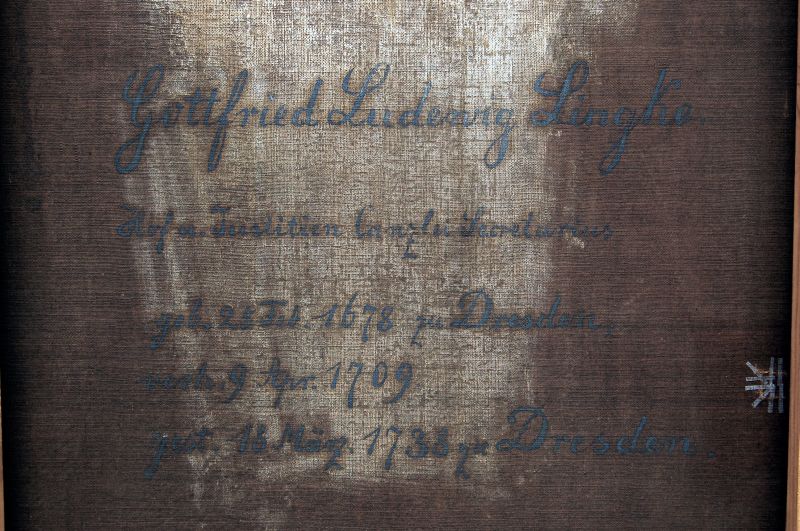 Gottfried Ludewig Lingke.
Hof u. Justitien Canzlei Secretarius
geb. 28 Feb. 1678 zu Dresden,
verh. 9 Apr. 1709
gest. 18 März. 1738 zu Dresden.